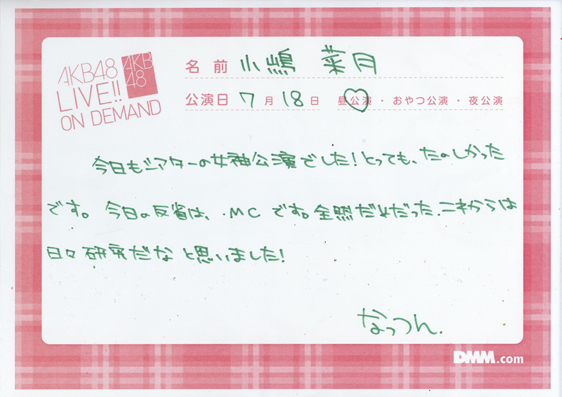 AKB48
LIVE!!
ON DEMAND
AKB
48
名前 小嶋 菜月
公演日 7月18日 昼公演・おやつ公演・夜公演
今日もシアターの女神公演でした!とっても、たのしかった
です。今日の反省は、MCです。全然だめだった.これからは
日々研究だなと思いました!
なっつん.
DMM.com